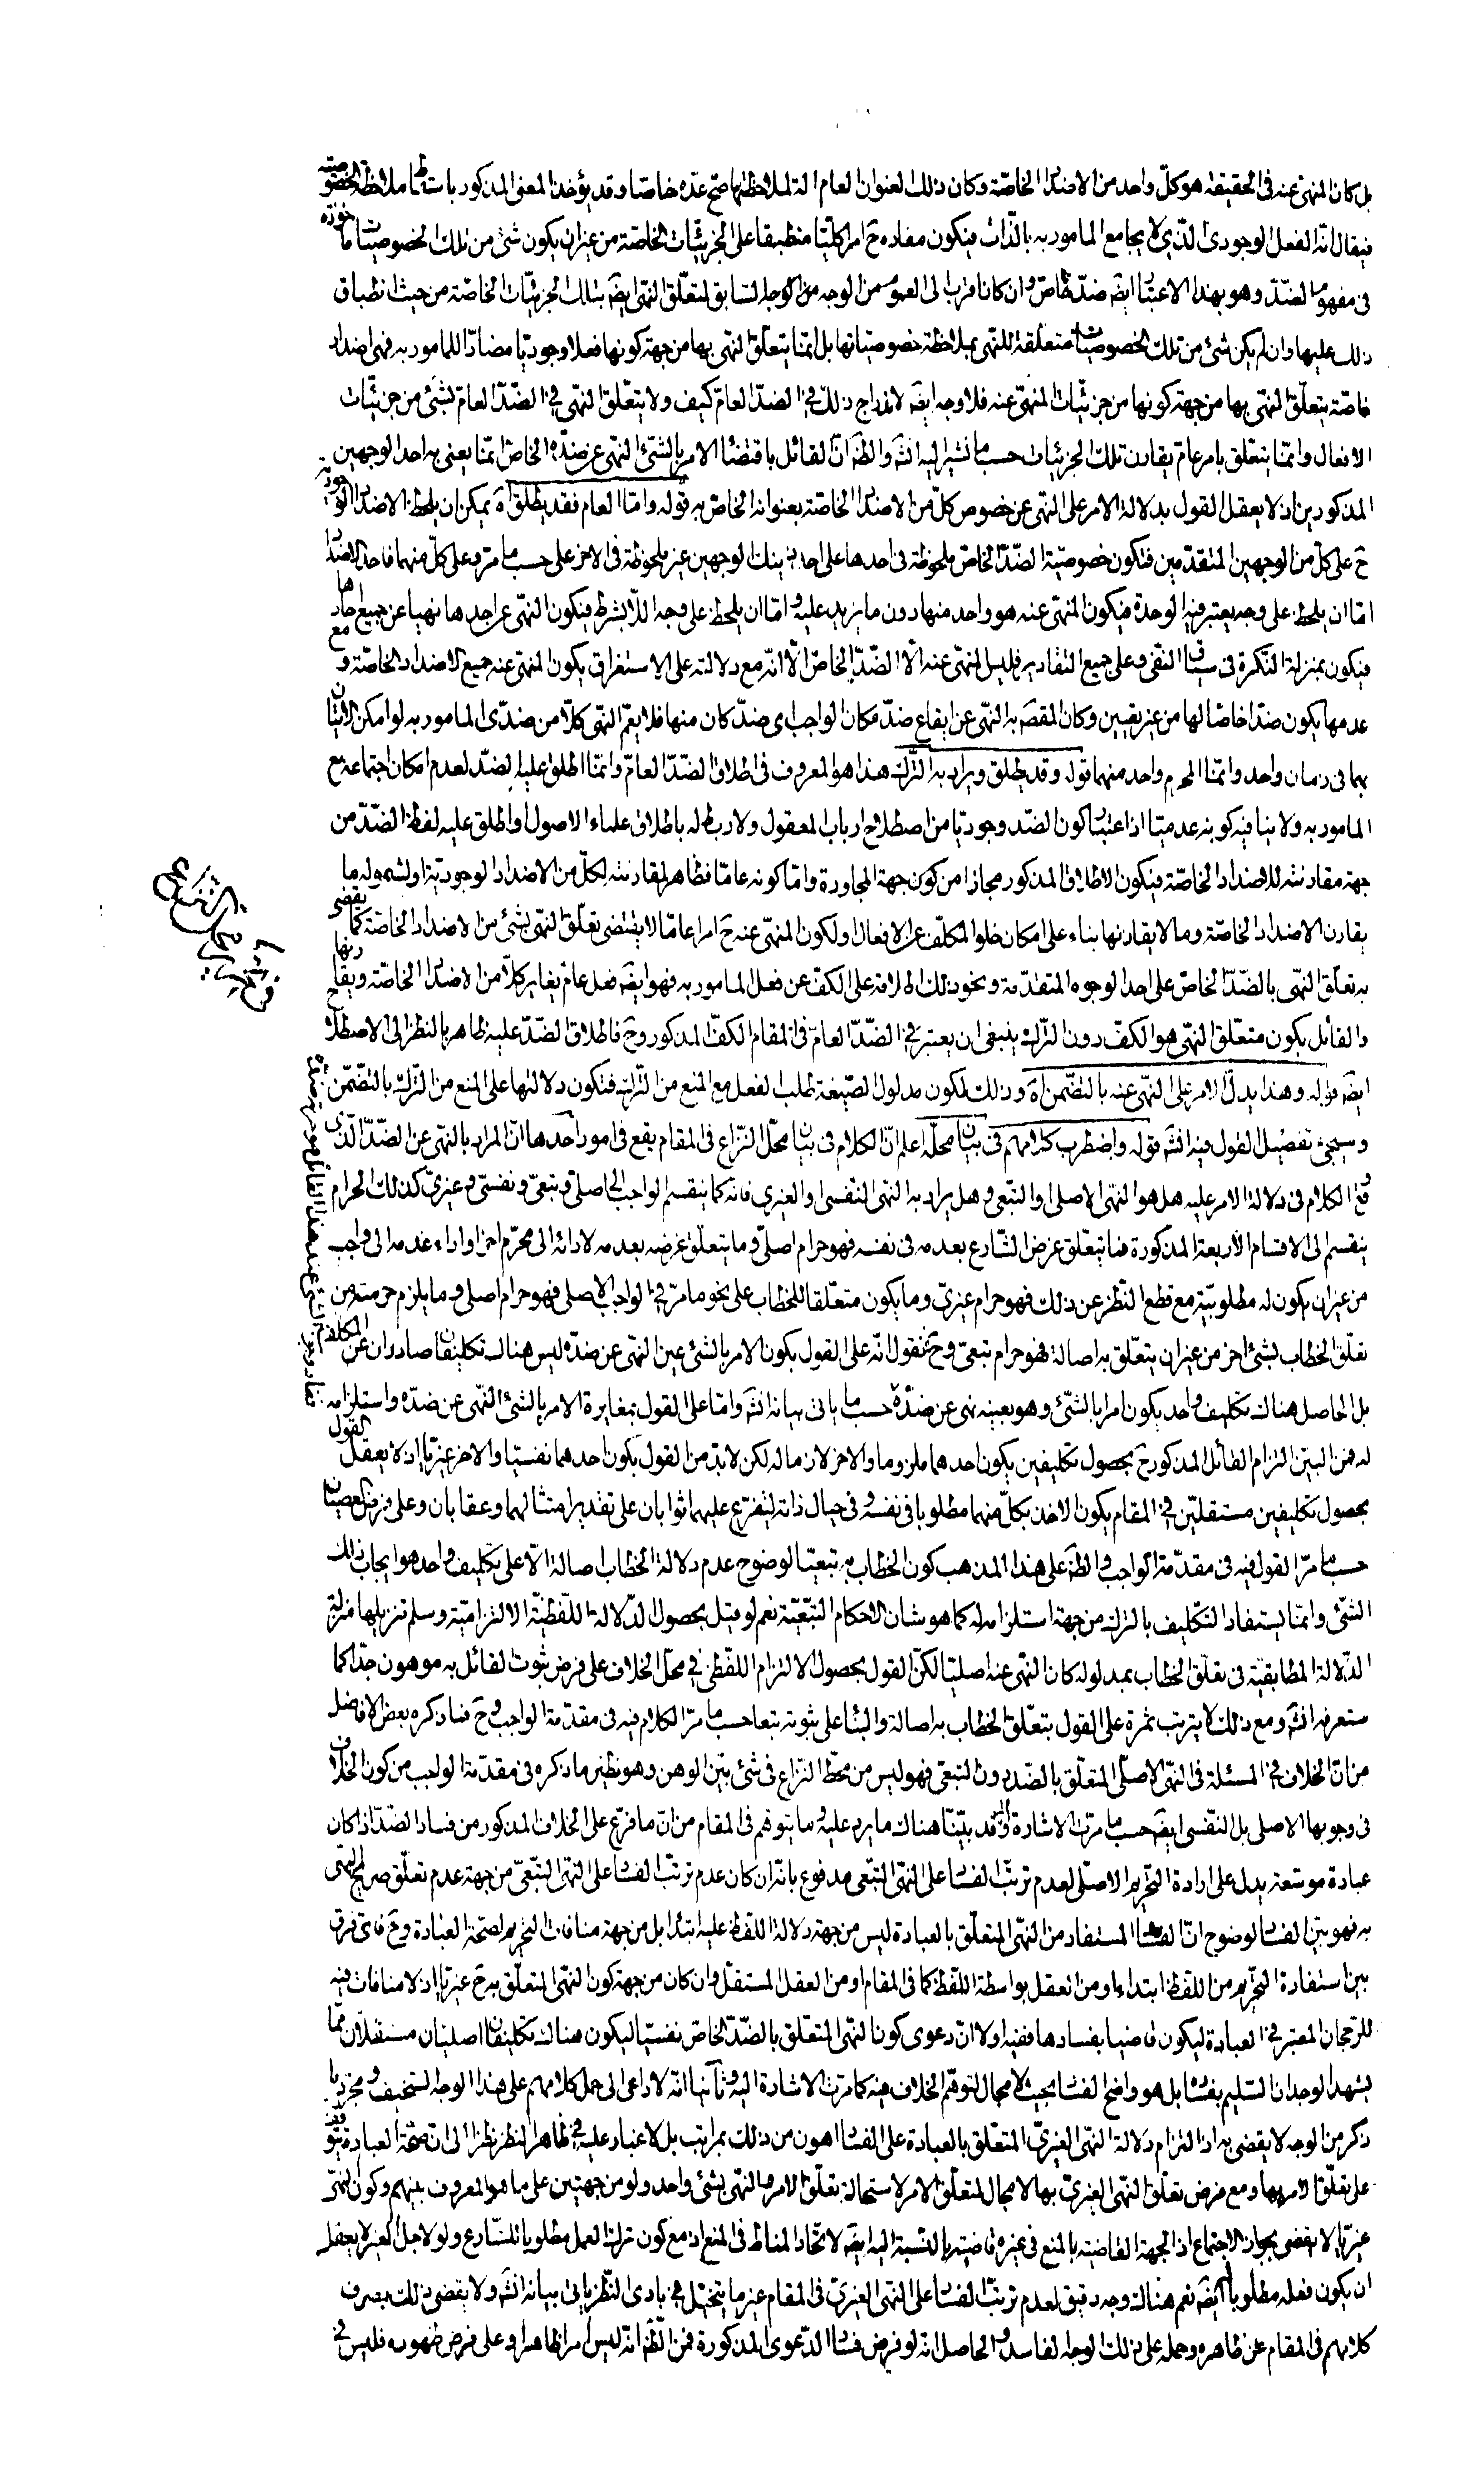 بل كان المنهى عنه فى الحقيقة هو كلّ واحد من الاضداد الخاصّة وكان ذلك العنوان العام الة لملاحظتها صحّ عدّه خاصّا وقد يؤخذ المعنى المذكور باسقاط ملاحظة الخصوصيّة
فيقال انّه الفعل الوجودى الّذى لا يجامع المامور به بالذّات فيكون مفاده ح امرا كليّا منطبقا على الجزئيّات الخاصّة من غير ان يكون شئ من تلك الخصوصيّات ماخوذة
فى مفهوم الضدّ وهو بهذا الاعتبار ايضَ ضدّ خاصّ وان كان اقرب الى العموم من الوجه السّابق لتعلّق النّهى ايضَ بتلك الجزئيّات الخاصّة من حيث انطباق
ذلك عليها وان لم يكن شئ من تلك الخصوصيّات متعلّقة للنّهى بملاحظة خصوصيّاتها بل انمّا يتعلّق النّهى بها من جهة كونها فعلا وجوديّا مضادّا للمامور به فهى اضداد
خاصّة يتعلّق النّهى بها من جهة كونها من جزئيّات المنهىّ عنه فلا وجه ايضَ لاندراج ذلك فى الضدّ العامّ كيف ولا يتعلّق النّهى فى الضدّ العامّ بشئ من جزئيّات
الافعال وانمّا يتعلّق بامر عامّ يقارن تلك الجزئيات حسب ما نشير اليه انشَ والظَ انّ القائل باقتضاء الامر بالشّئ النّهى عن ضدّه الخاصّ انمّا يعنى به احد الوجهين
المذكورين اذ لا يعقل القول بدلالة الامر على النّهى عن خصوص كلّ من الاضداد الخاصّة بعنوانه الخاصّ به قوله وامّا العام فقد يطلق اه يمكن ان يلحظ الاضداد الوجوديّة
ح على كلّ من الوجهين المتقدّمين فتكون خصوصيّة الضدّ الخاصّ ملحوظة فى احدها على احد ذينك الوجهين غير ملحوظة فى الاخر على حسب ما مرّ وعلى كلّ منهما فاحد الاضداد
امّا ان يلحظ على وجه يعتبر فيه الوحدة فيكون المنهىّ عنه هو واحد منها دون ما يزيد عليه وامّا ان يلحظ على وجه اللّا بشرط فيكون النّهى عن احدها نهيا عن جميع احادها
فيكون بمنزلة النّكرة فى سياق النّفى وعلى جميع التّقادير فليس المنهىّ عنه الّا الضّدّ الخاصّ الّا انّه مع دلالته على الاستغراق يكون المنهىّ عنه جميع الاضداد الخاصّة ومع
عدمها يكون ضدّا خاصّا لها من غير تعيين وكان المقصَ به النّهى عن ايقاع ضدّ مكان الواجب اىّ ضدّ كان منها فلا يعمّ النّهى كلّا من ضدّى المامور به لو امكن الاتيان
بهما فى زمان واحد وانمّا المحرم واحد منهما قوله وقد يطلق ويراد به التّرك هذا هو المعروف فى اطلاق الضدّ العامّ وانمّا اطلق عليه الضدّ لعدم امكان اجتماعه مع
المامور به ولا ينافيه كونه عدميّا اذ اعتبار كون الضدّ وجوديّا من اصطلاح ارباب المعقول ولا ربط له باطلاق علماء الاصول واطلق عليه لفظ الضدّ من
جهة مقارنته للاضداد الخاصّة فيكون الاطلاق المذكور مجازا من كون جهة المجاورة وامّا كونه عامّا فظاهر لمقارنته لكلّ من الاضداد الوجوديّة او لشموله ما
يقارن الاضداد الخاصّة وما لا يقارنها بناء على امكان خلوّ المكلّف عن الافعال ولكون المنهىّ عنه ح امرا عامّا لا يقتضى تعلّق النّهى بشئ من الاضداد الخاصّة كما يقضى
به تعلّق النّهى بالضدّ الخاصّ على احد الوجوه المتقدّمة ونحو ذلك اطلاقه على الكفّ عن فعل المامور به فهو ايضَ فعل عامّ يغاير كلّا من الاضداد الخاصّة ويقارنها ح
والقائل بكون متعلّق النّهى هو الكفّ دون التّرك ينبغى ان يعتبر فى الضدّ العامّ فى المقام الكفّ المذكور وح فاطلاق الضدّ عليه ظاهر بالنظر الى الاصطلاح
ايضَ قوله وهذا يدلّ الامر على النّهى عنه بالتّضمّن اه وذلك لكون مدلول الصّيغة طلب الفعل مع المنع من التّرك فتكون دلالتها على المنع من التّرك بالتّضمّن
وسيجئ تفصيل القول فيه انشَ قوله واضطرب كلامهم فى بيان محلّه اعلم انّ الكلام فى بيان محلّ النّزاع فى المقام يقع فى امور احدها انّ المراد بالنّهى عن الضدّ الذى
وقع الكلام فى دلالة الامر عليه هل هو النّهى الاصلى والتّبعى وهل يراد به النّهى النّفسى والغيرى فانه كما ينقسم الواجب الى اصلىّ وتبعىّ ونفسىّ وغيرىّ كذلك الحرام
ينقسم الى الاقسام الأربعة المذكورة فما يتعلّق غرض الشّارع بعدمه فى نفسه فهو حرام اصلىّ وما يتعلّق غرضه بعدمه لادائه الى محرّم اخر او اداء عدمه الى واجب
من غير ان يكون له مطلوبيّة مع قطع النّظر عن ذلك فهو حرام غيرىّ وما يكون متعلّقا للخطاب على نحو ما مرّ فى الواجب الاصلى فهو حرام اصلى وما يلزم حرمته من
تعلّق الخطاب بشئ اخر من غير ان يتعلّق به اصالة فهو حرام تبعىّ وح فنقول انّه على القول بكون الامر بالشئ عين النّهى عن ضدّه ليس هناك تكليفان صادران عن المكلّف
بل الحاصل هناك تكليف واحد يكون امرا بالشّئ وهو بعينه نهى عن ضدّه حسب ما ياتى بيانه انشَ وامّا على القول بمغايرة الامر بالشئ النّهى عن ضدّه واستلزامه
له فمن البيّن التزام القائل المذكور ح بحصول تكليفين يكون احدهما ملزوما والاخر لازما له لكن لا بدّ من القول بكون احدهما نفسيّا والاخر غيريّا اذ لا يعقل القول
بحصول تكليفين مستقلّين فى المقام يكون الاخذ بكلّ منهما مطلوبا فى نفسه وفى حيال ذاته ليتفرّع عليهما ثوابان على تقدير امتثالهما وعقابان وعلى فرض العصيان
حسب ما مرّ القول فيه فى مقدّمة الواجب والظَ على هذا المذهب كون الخطاب به تبعيّا لوضوح عدم دلالة الخطاب اصالة الّا على تكليف واحد هو ايجاب ذلك
الشّئ وانمّا يستفاد التّكليف بالترك من جهة استلزامه له كما هو شان الاحكام التّبعيّة نعم لو قيل بحصول الدّلالة اللّفظيّة الالتزاميّة وسلم تنزيلها منزلة
الدّلالة المطابقيّة فى تعلّق الخطاب بمدلوله كان النّهى عنه اصليّا لكنّ القول بحصول الالتزام اللّفظىّ فى محلّ الخلاف على فرض ثبوت القائل به موهون جدّا كما
ستعرفه انشَ ومع ذلك لا يترتب ثمرة على القول بتعلّق الخطاب به اصالة والبناء على ثبوته تبعا حسب ما مرّ الكلام فيه فى مقدّمة الواجب وح فما ذكره بعض الافاضل
من انّ الخلاف فى المسئلة فى النّهى الاصلىّ المتعلّق بالضدّ دون التّبعى فهو ليس من محطّ النّزاع فى شئ بيّن الوهن وهو نظير ما ذكره فى مقدّمة الواجب من كون الخلاف
فى وجوبها الاصلى بل النّفسى ايضَ حسب ما مرّت الاشارة اليه وقد بيّنّا هناك ما يرد عليه وما يتوهّم فى المقام من انّ ما فرّع على الخلاف المذكور من فساد الضدّ اذا كان
عبادة موسّعة يدل على ارادة التّحريم الاصلّى لعدم ترتّب الفساد على النّهى التّبعى مدفوع بانّه ان كان عدم ترتّب الفساد على النّهى التّبعىّ من جهة عدم تعلّق صريح النّهى
به فهو بيّن الفساد لوضوح انّ الفساد المستفاد من النّهى المتعلّق بالعبادة ليس من جهة دلالة اللّفظ عليه ابتداء بل من جهة منافات التّحريم لصحّة العبادة وح فاىّ فرق
بين استفادة التّحريم من اللّفظ ابتداء او من العقل بواسطة اللّفظ كما فى المقام او من العقل المستقلّ وان كان من جهة كون النّهى المتعلّق به ح غيريّا اذ لا منافات فيه
للرّجحان المعتبر فى العبادة ليكون قاضيا بفسادها ففيه اولا انّ دعوى كون النّهى المتعلّق بالضدّ الخاصّ نفسيّا ليكون هناك تكليفان اصليّان مستقلّان ممّا
يشهد الوجدان السّليم بفساده بل هو واضح الفساد بحيث لا مجال لتوهّم الخلاف فيه كما مرّت الاشارة اليه وثانيها انّه لا داعى الى حمل كلامهم على هذا الوجه السّخيف ومجرّد ما
ذكر من الوجه لا يقضى به اذ التزام دلالة النّهى الغيرىّ المتعلّق بالعبادة على الفساد اهون من ذلك بمراتب بل لا غبار عليه فى ظاهر النّظر نظرا الى ان صحّة العبادة يتوقّف
على تعلّق الامر بها ومع فرض تعلّق النّهى الغيرىّ بها لا مجال لتعلّق الامر لاستحالة تعلّق الامر والنّهى بشئ واحد ولو من جهتين على ما هو المعروف بينهم وكون النّهى
غيريّا لا يقضى بجواز الاجتماع اذ الجهة القاضية بالمنع فى غيره قاضية بالنّسبة اليه ايضَ لاتّحاد المناط فى المنع اذ مع كون ترك العمل مطلوبا للشّارع ولو لاجل الغير لا يعقل
ان يكون فعله مطلوبا ايضَ نعم هناك وجه دقيق لعدم ترتّب الفساد على النّهى الغيرىّ فى المقام غير ما يتخيّل فى بادى النّظر ياتى بيانه انشَ ولا يقضى ذلك بصرف
كلامهم فى المقام عن ظاهره وحمله على ذلك الوجه الفاسد والحاصل انّه لو فرض فساد الدّعوى المذكورة فمن الظَ انّه ليس امرا ظاهرا وعلى فرض ظهوره فليس فى